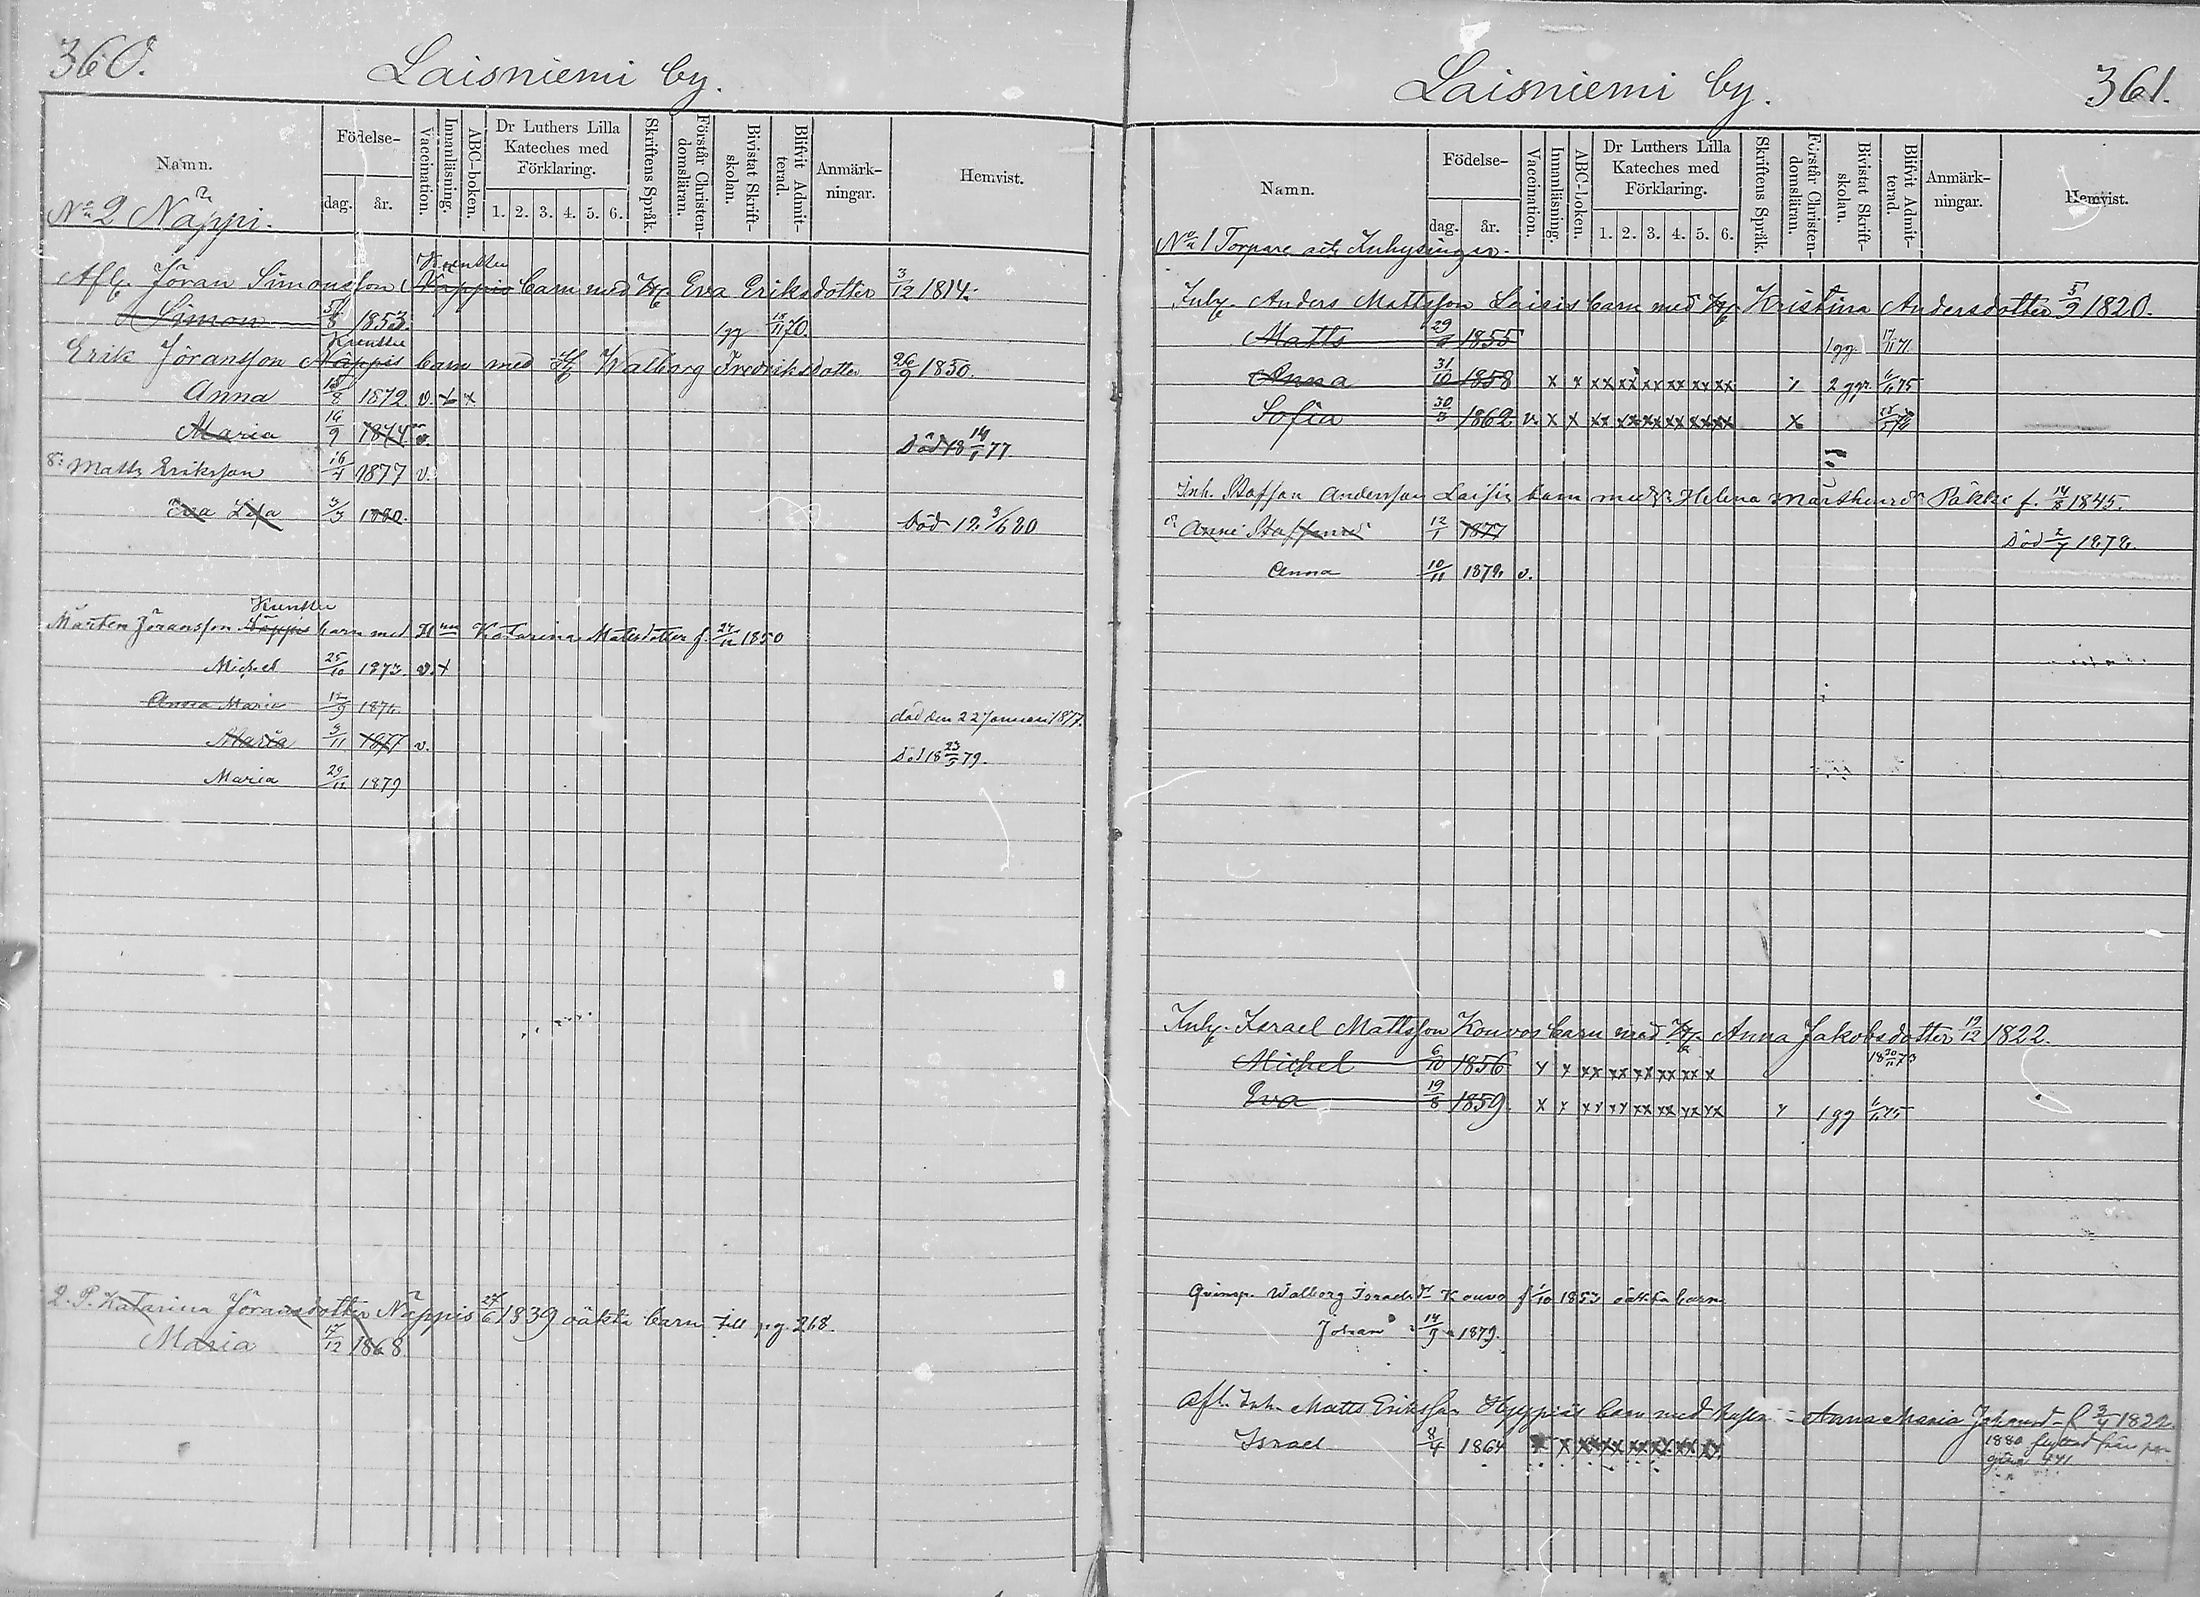 360.
Laisniemi by.
Namn.
Födelse-
dag.
år.
Vaccination.
Innanläsning.
ABC-boken.
Dr Luthers Lilla Kateches med Förklaring.
1. 2. 3. 4. 5. 6.
Skriftens Språk.
Förstår Christen-domsläran.
Bivistat Skrift-skolan.
Blifvit Admit-terad.
Anmärk-ningar.
Hemvist.
No 2 Näppi.
Afl. Jöran Simonsson Näppis barn med H Eva Eriksdotter 3/12 1814.
Simon 5/8 1853. 1 gg 13/11 70.
Erik Jöransson Näppis barn med H Walborg Fredriksdotter 26/9 1850.
Anna 15/8 1872 v. x x
Maria 14/9 1874 v. Död 18 14/1 77
Matts Eriksson 16/4 1877 v.
Eva Lisa 3/3 1880. Död
Mårten Jöransson Näppis barn med Hun Katarina Mattsdotter f. 24/12 1850
Michel 25/10 1873 v. x
Anna Maria 12/9 1876. död den 22 Januari 1877.
Maria 9/11 1877 v. Död 18 23/5 79.
Maria 29/11 1879
2. P. Katarina Jöransdotter Näppis 24/6 1839 oäkta barn till pg. 268.
Maria 17/12 1868
Laisniemi by.
361.
Namn.
Födelse-
dag.
år.
Vaccination.
Innanläsning.
ABC-boken.
Dr Luthers Lilla Kateches med Förklaring.
1. 2. 3. 4. 5. 6.
Skriftens Språk.
Förstår Christen-domsläran.
Bivistat Skrift-skolan.
Blifvit Admit-terad.
Anmärk-ningar.
Hemvist.
No 1 Torpare och Inhysingar.
Inh. Anders Mattsson Laisis barn med H Kristina Andersdotter 5/9 1820.
Matts 1855 1 gg. 17/11 71.
Anna 31/10 1858 x x xx xx xx xx xx xx x 2 ggr.
Sofia 1862 v. x x xx xx xx xx xx xx x
Inh. Staffan Andersson Laisis barn med Helena Mårthensdr Päkki f. 14/8 1845.
Anni 12/1 1877 Död 2/7 1878.
Anna 10/11 1878 v.
Inh. Israel Mattsson Kouvos barn med H Anna Jakobsdotter 19/12 1822.
Michel 6/10 1856 x x xx xx xx xx xx x 18 30/11 73
Eva 19/8 1859 x x xx xx xx xx xx xx x 1 gg
Qvinsp. Walborg Israelsdr Kouvo f. 1/10 1853 oäkta barn
Johan 14/9 1879.
Afl. Inh. Matts Eriksson Hyypiäs barn med Anna Maria Johansd. f. 3/4 1822.
Israel 8/4 1864 x x xx xx xx xx xx xx 1880 flyttad från pa-
gina 441